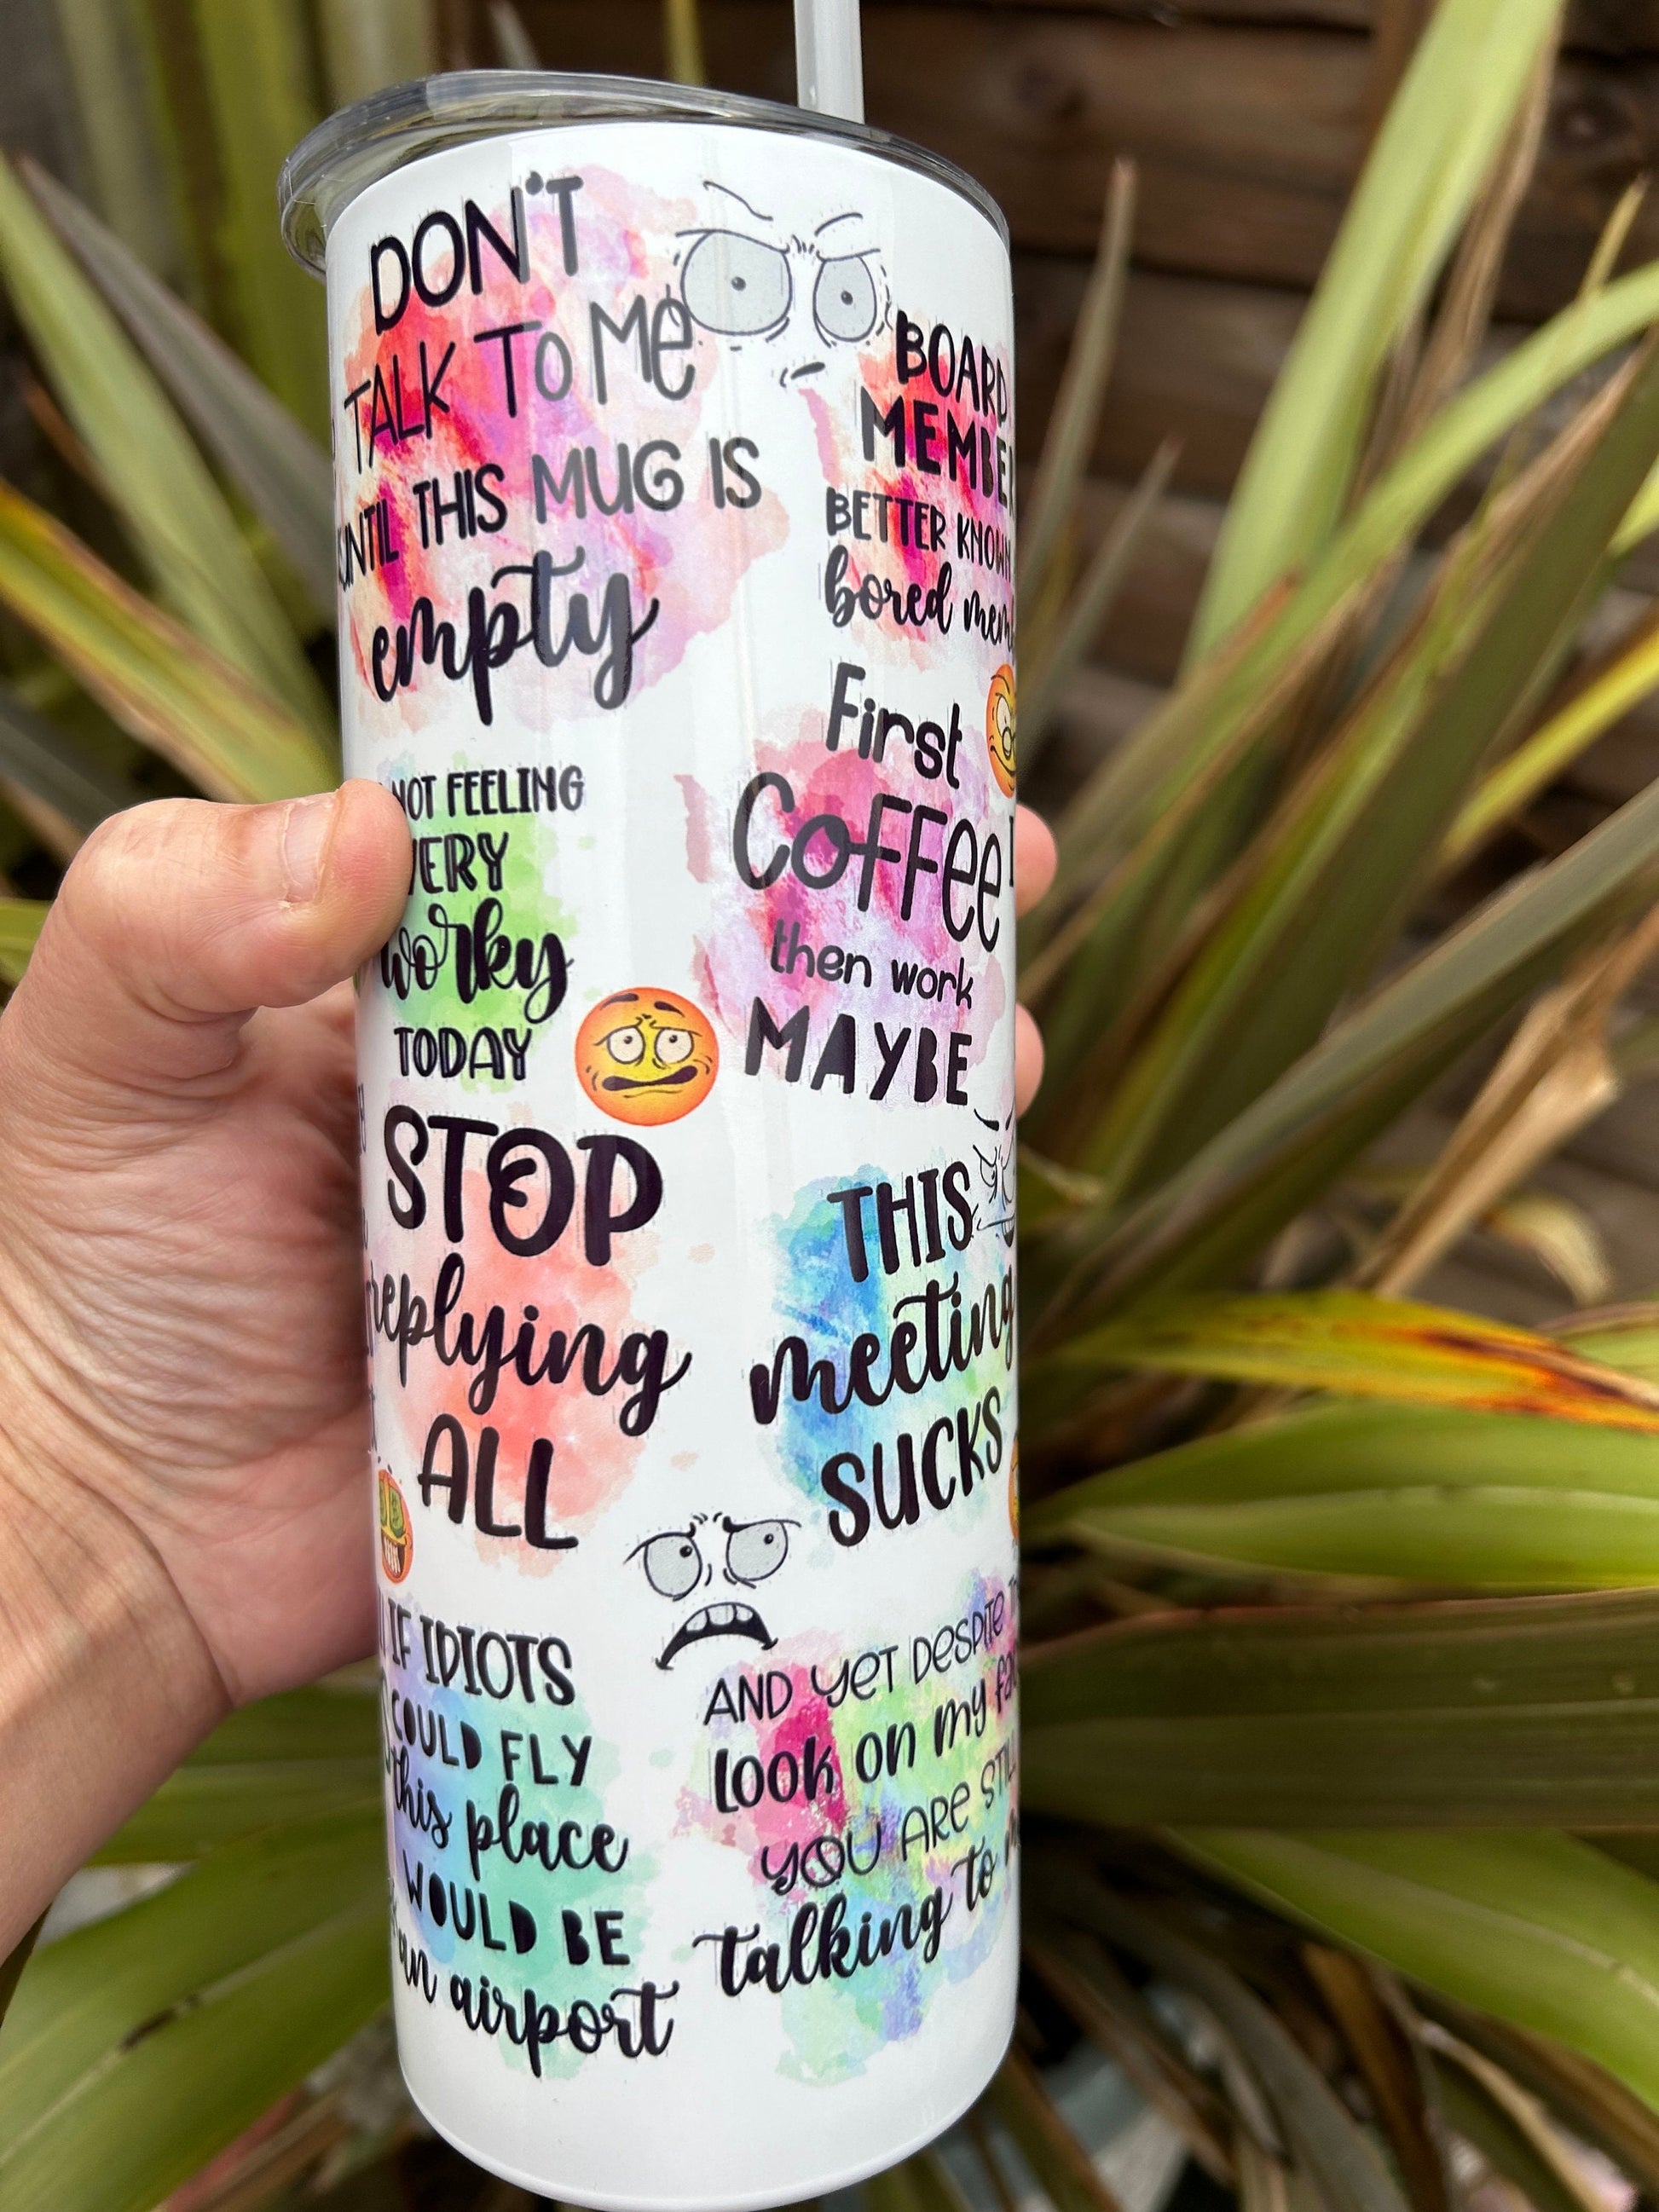 DON'T
TALK TO ME
UNTIL THIS MUG IS
empty
BOARD
MEMBE
BETTER KNOWN
bored mem
NOT FEELING
VERY
Worky
TODAY
First
Coffee
then work
MAYBE
STOP
replying
ALL
THIS
meeting
SUCKS
IF IDIOTS
COULD FLY
this place
WOULD BE
an airport
AND YET DESPITE
LOOK ON my fa
YOU ARE STILL
talking to